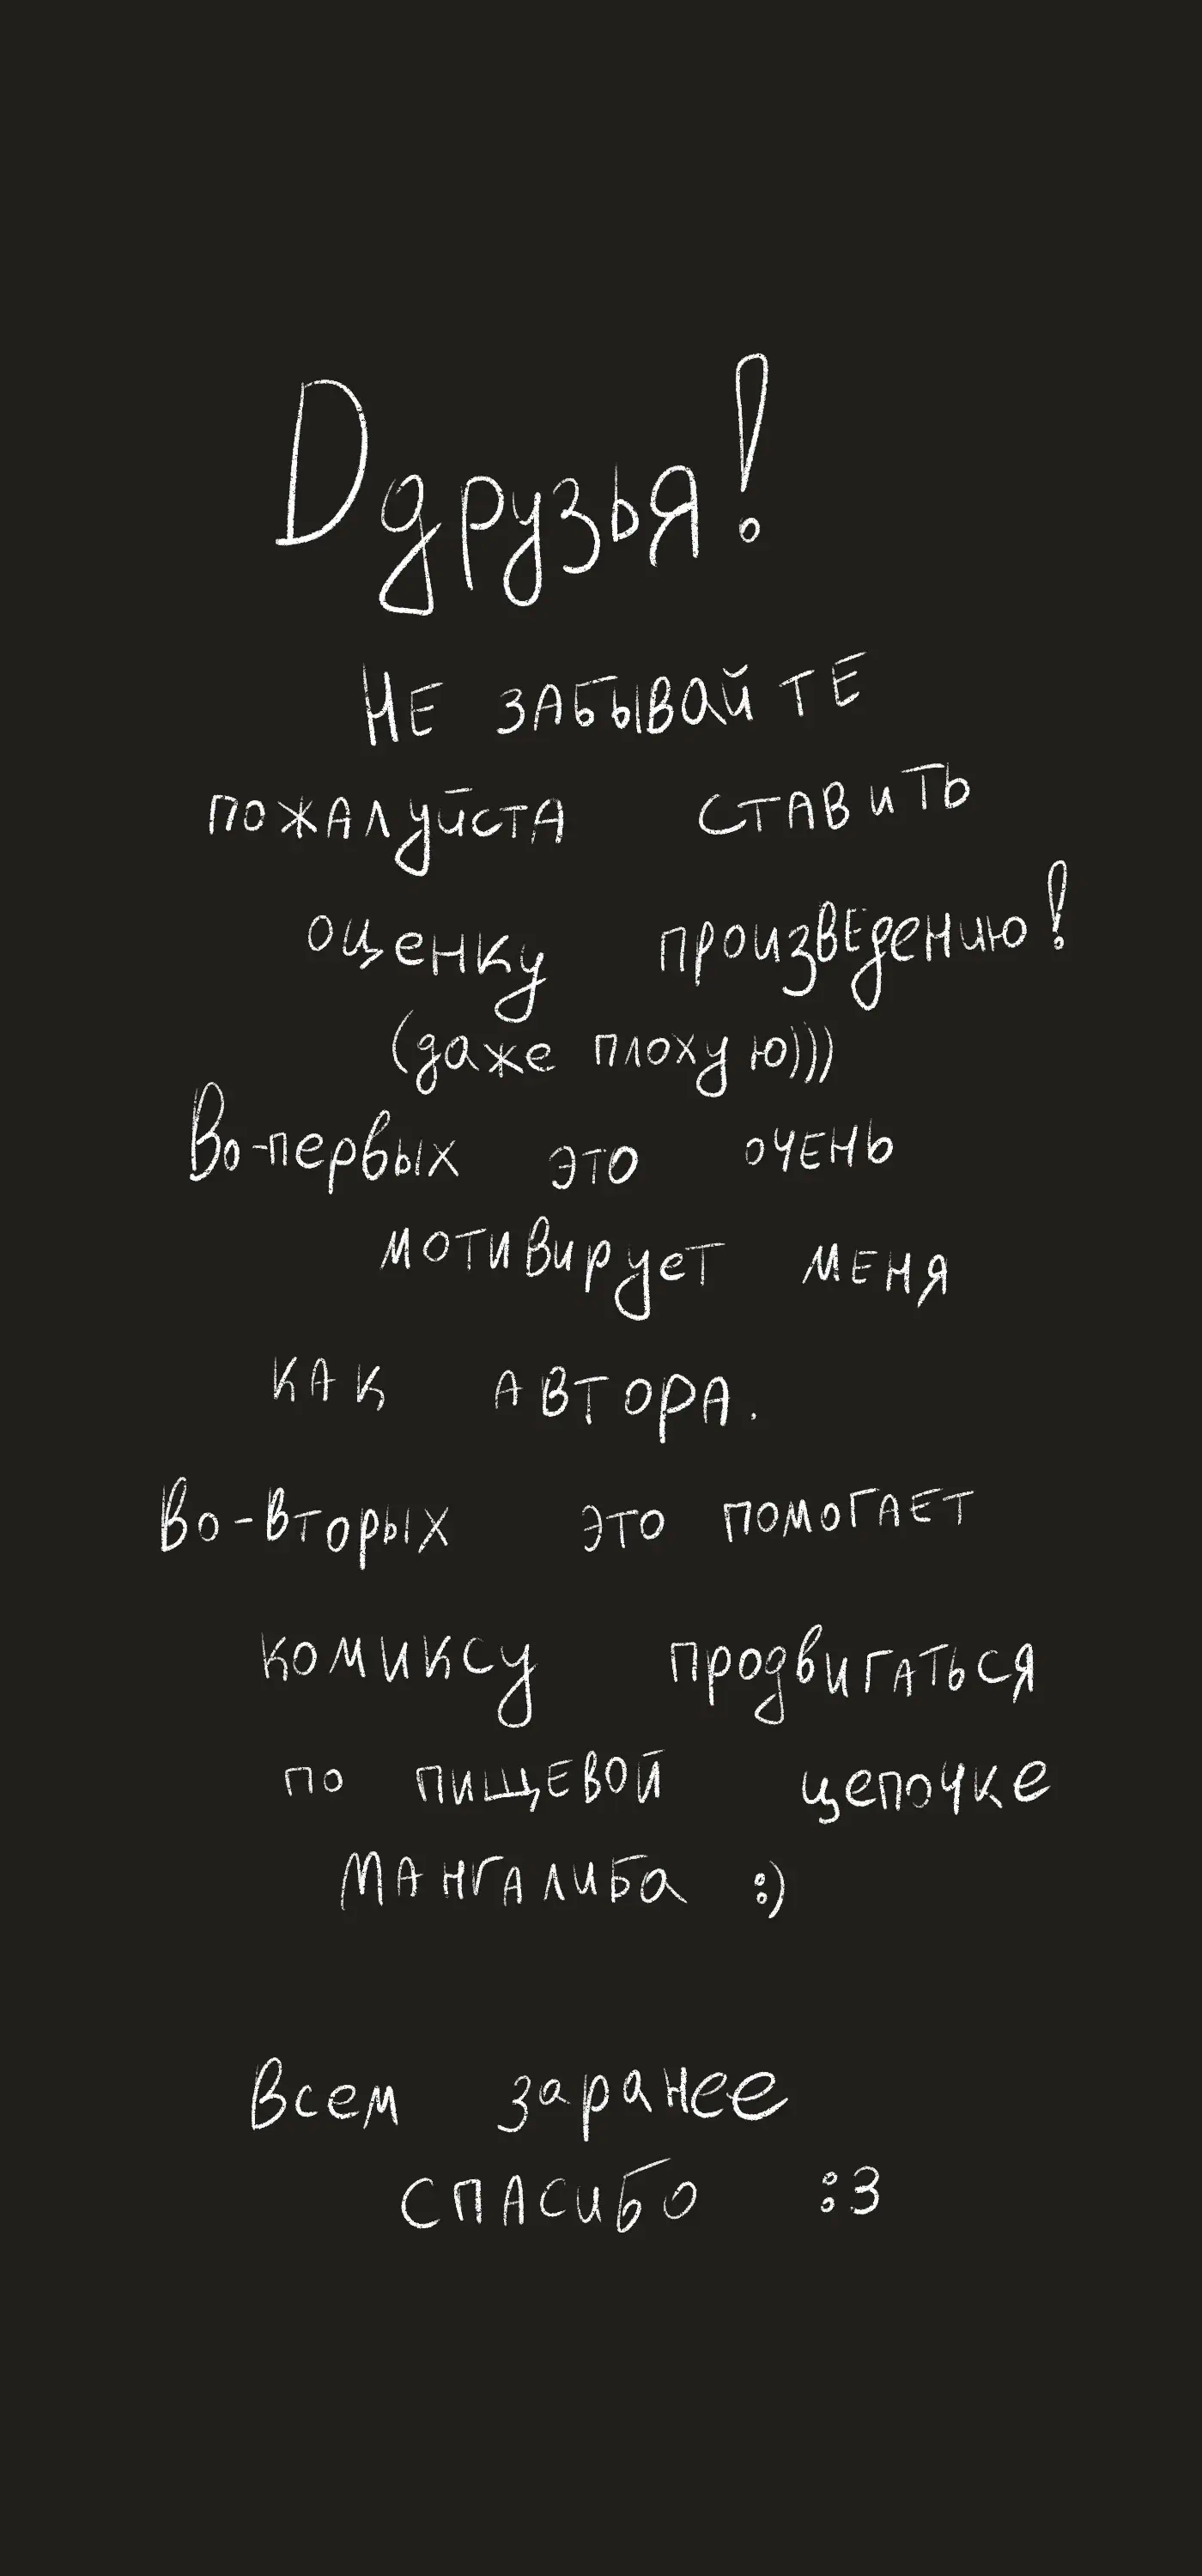 Dдрузья!
НЕ ЗАБЫВАЙТЕ
ПОЖАЛУЙСТА СТАВИТЬ
оценку произведению!
(даже плохую)))
Во-первых это очень
мотивирует меня
как автора.
Во-вторых это помогает
комиксу продвигаться
по пищевой цепочке
Мангалиба :)
Всем заранее
спасибо :3